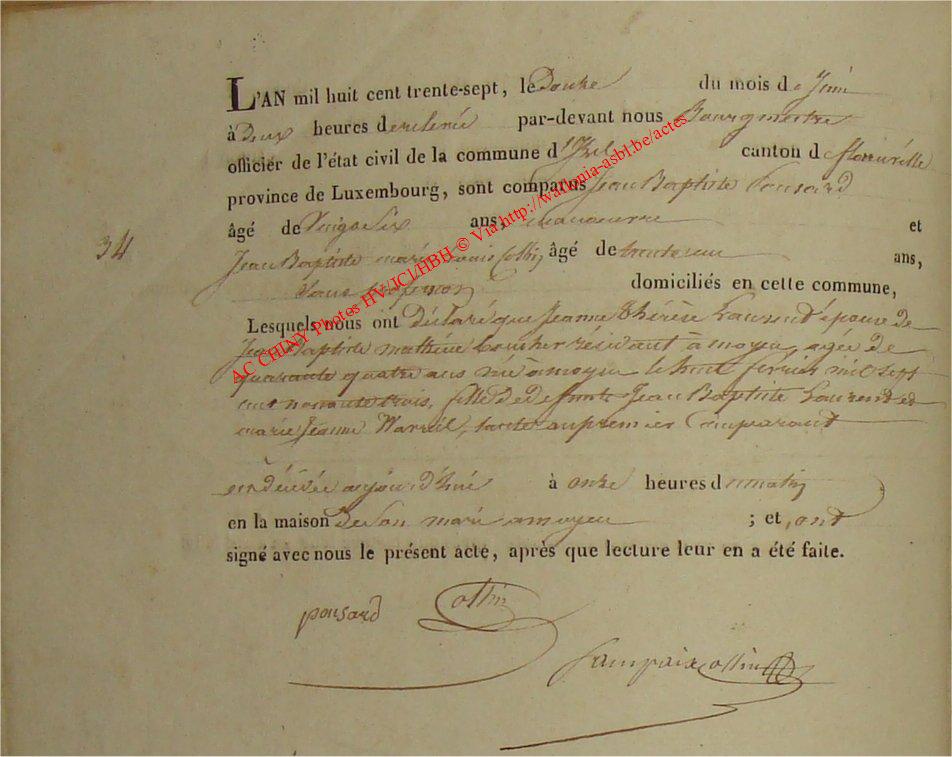 L'AN mil huit cent trente-sept, le Douze du mois de Juin
à Deux heures de relevée par-devant nous Bourgmestre
officier de l'état civil de la commune d'Izel canton de florenville
province de Luxembourg, sont comparus Jean Baptiste Ponsard
âgé de Vingt Six ans, manoeuvre et
34
Jean Baptiste marie Louis Collin âgé de trente un ans,
Sans profession domiciliés en cette commune,
Lesquels nous ont déclaré que Jeanne Thérèse Laurent épouse de
Jean Baptiste mathieu résidant à moyen, agée de
quarante quatre ans née à moyen le huit fevrier mil sept
cent nonante trois, fille de defunts Jean Baptiste Laurent et
marie Jeanne tante au premier Comparant
est décédée aujourd'hui à onze heures du matin
en la maison De Son mari a moyen ; et, ont
signé avec nous le présent acte, après que lecture leur en a été faite.
ponsard Collin
Sampaix Collin
AC CHINY Photos HV/JCI/HBH © Via http://wallonia-asbl.be/actes